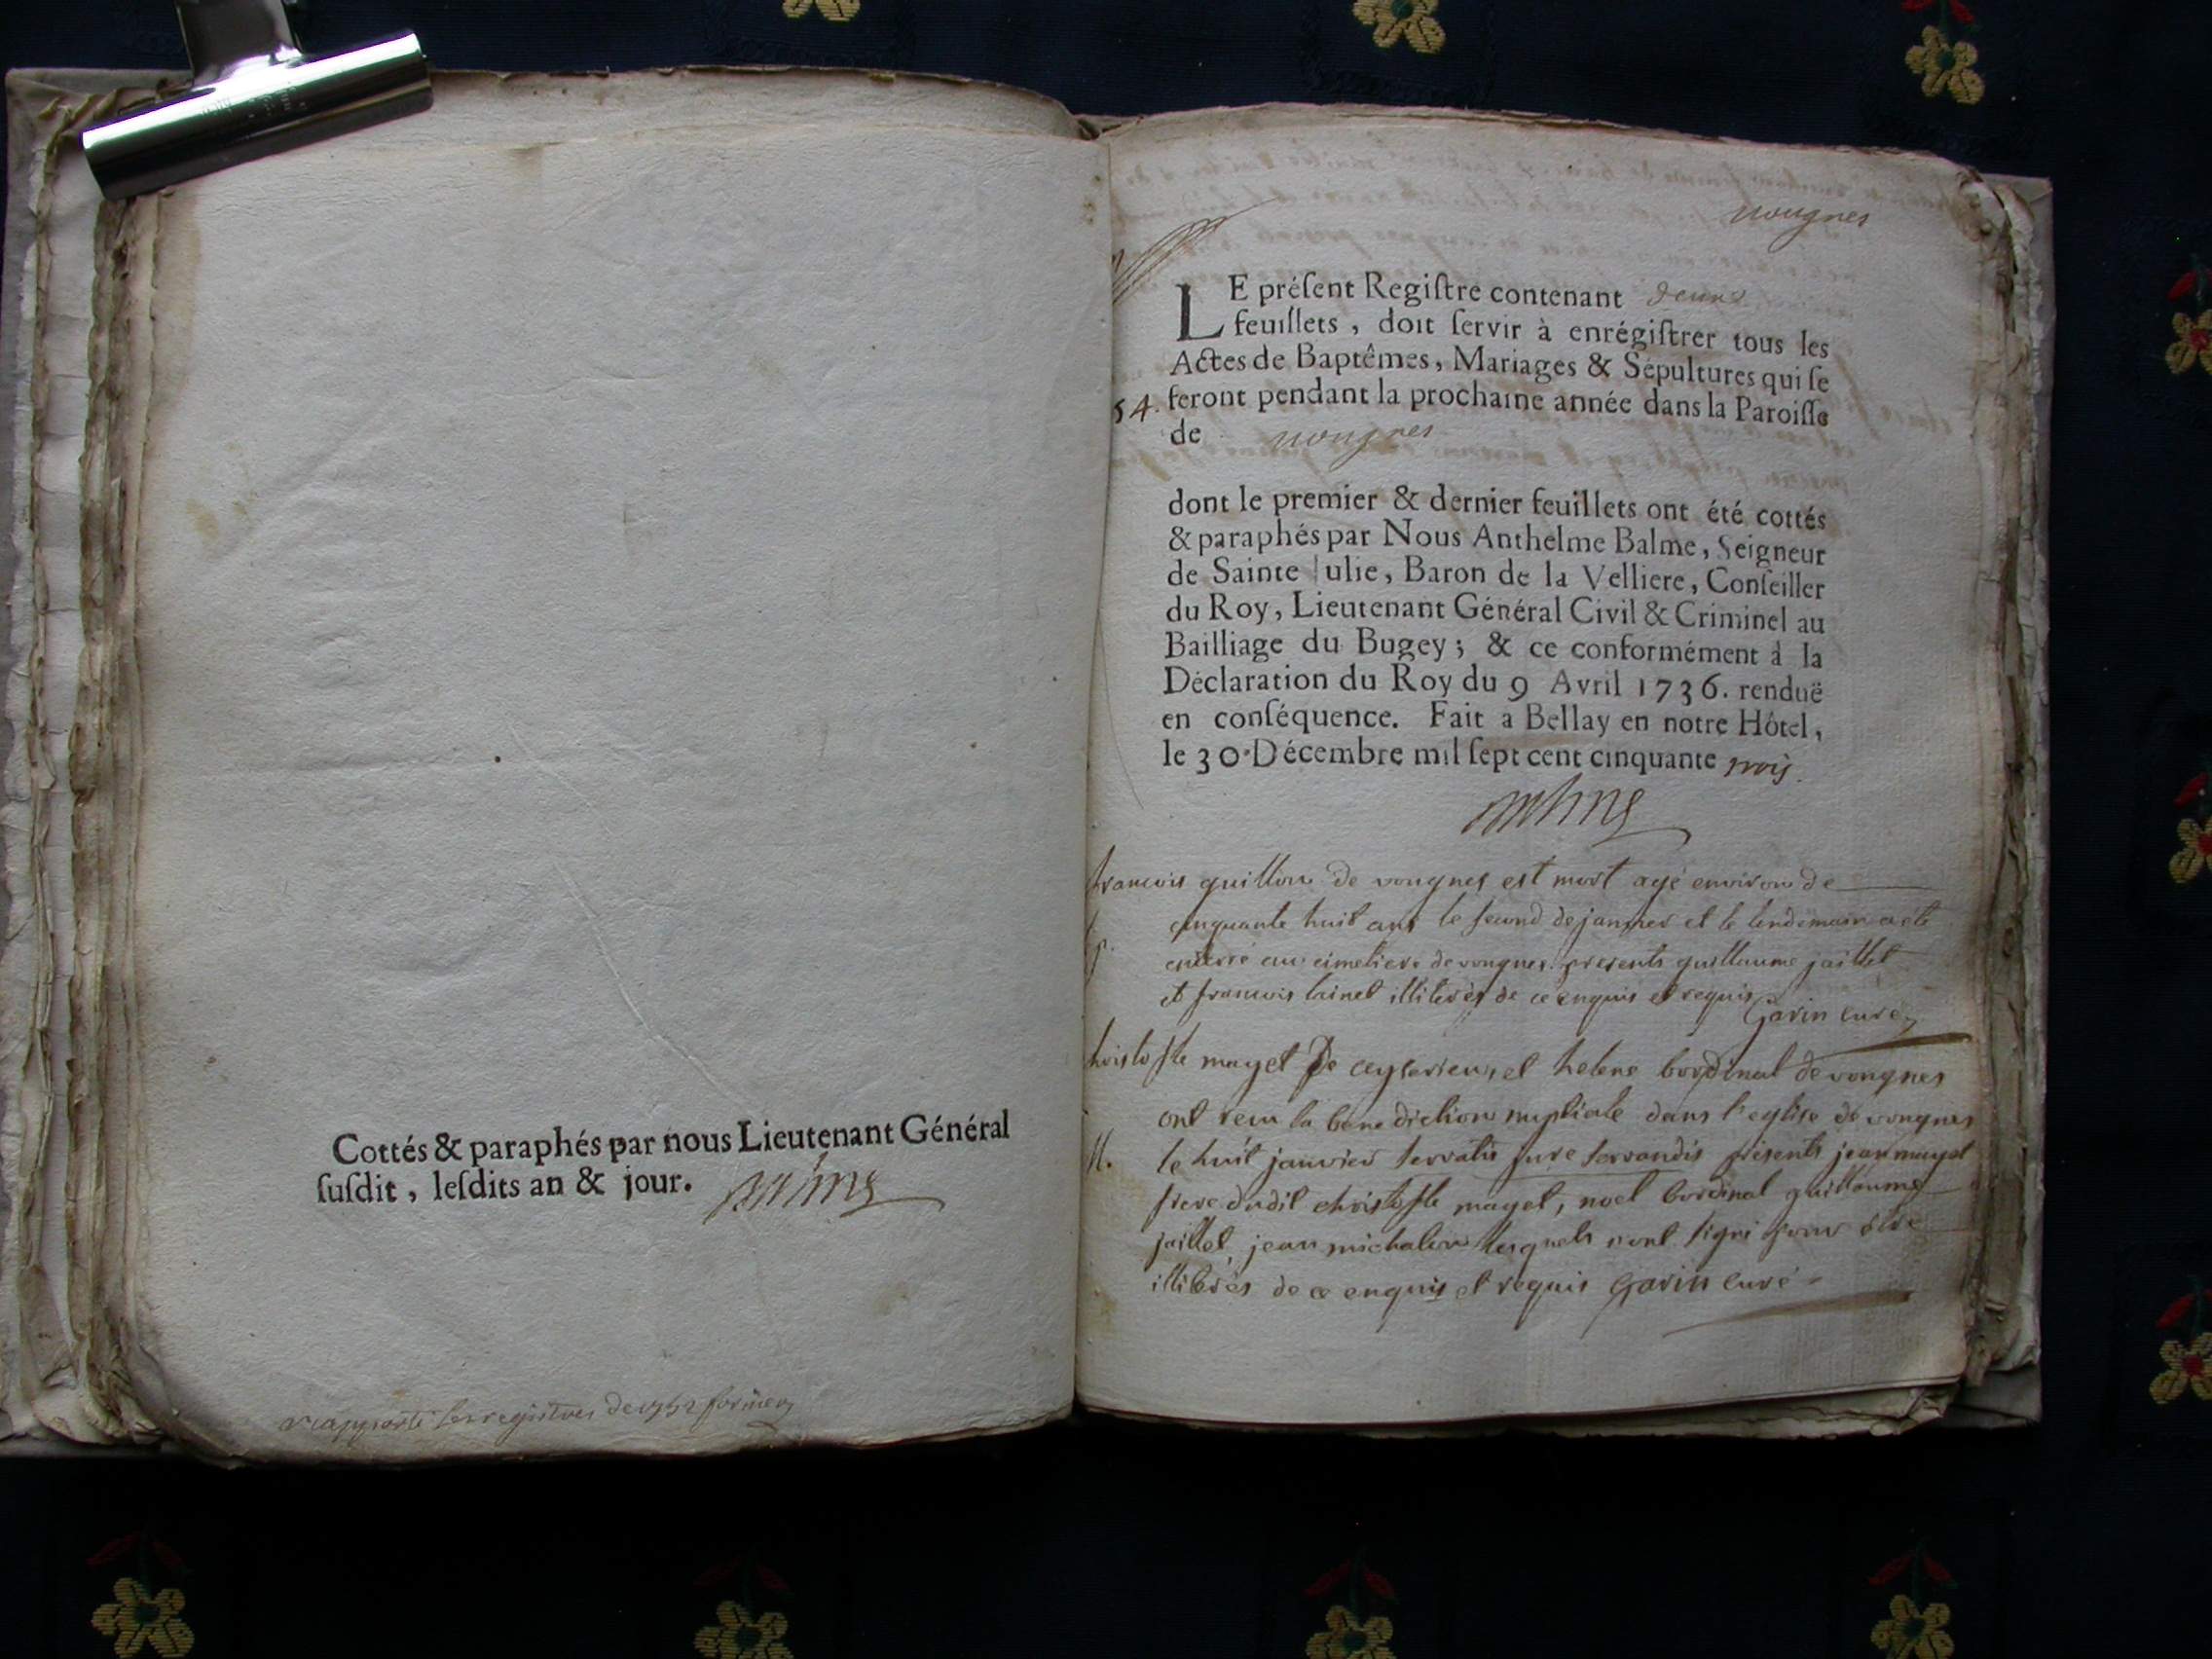 Cottés & paraphés par nous Lieutenant Général
ſuſdit, leſdits an & jour.
les registres de 1752
vougnes
LE préſent Regiſtre contenant deux
feuillets, doit ſervir à enrégiſtrer tous les
Actes de Baptêmes, Mariages & Sépultures qui ſe
54. feront pendant la prochaine année dans la Paroiſſe
de vougnes
dont le premier & dernier feuillets ont été cottés
& paraphés par Nous Anthelme Balme, Seigneur
de Sainte Julie, Baron de la Velliere, Conſeiller
du Roy, Lieutenant Général Civil & Criminel au
Bailliage du Bugey; & ce conformément à la
Déclaration du Roy du 9 Avril 1736. renduë
en conſéquence. Fait a Bellay en notre Hôtel,
le 30 Décembre mil ſept cent cinquante trois.
francois guillon de vougnes est mort agé environ de
cinquante huit ans le second de janvier et le lendemain a eté
enterré au cimetiere de vougnes. presents guillaume jaillet
et francois lainet illiterés de ce enquis et requis
Garin curé
hristofle mayet De ceyserieu, et helene bordinat de vougnes
ont recu la benediction nuptiale dans l'eglise de vougnes
M. le huit janvier servatis jure servandis présents jean mayet
frere dudit christofle mayet, noel bordinat guillaume
jaillet, jean michalon lesquels n'ont signé pour etre
illiterés de ce enquis et requis Garin curé